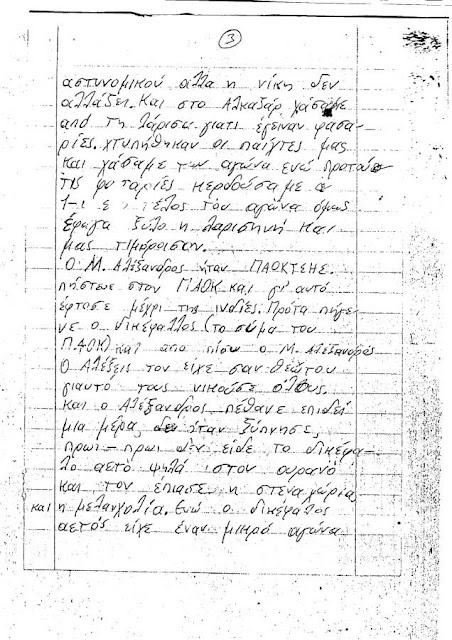 3
αστυνομικού αλλα η νίκη δεν
αλλάζει. Και στο Αλκαζάρ χάσαμε
από τη Λάρισα γιατι έγειναν φασα-
ρίες. χτυπήθηκαν οι παίχτες μας
και χάσαμε τον αγώνα ενώ προτού
τις φασαρίες κερδούσαμε
1-1 τέλος του αγώνα όμως
έφαγα ξύλο η λαρισηνή και
μας τιμόρισαν.
Ο Μ. Αλέξανδρος ήταν ΠΑΟΚΤΣΗΣ.
πήστευε στον ΠΑΟΚ και γι' αυτό
έφτασε μέχρι της ινδίες. Πρότα πήγε-
νε ο δικέφαλλος (το σύμα του
ΠΑΟΚ) και απο πίσω ο Μ. Αλέξανδρος
Ο Αλέξεις τον είχε σαν θεώ του
γιαυτό τους νικούσε όλους.
και ο Αλέξανδρος πέθανε επιδεί
μια μέρα όταν ξύπνησε,
πρωι-πρωι δεν είδε το δικέφα-
λο αετό ψηλά στον ουρανό
και τον έπιασε η στεναχώρια
και η μελανχολία. Ενώ ο δικέφαλος
αετός είχε έναν μικρό αγώνα